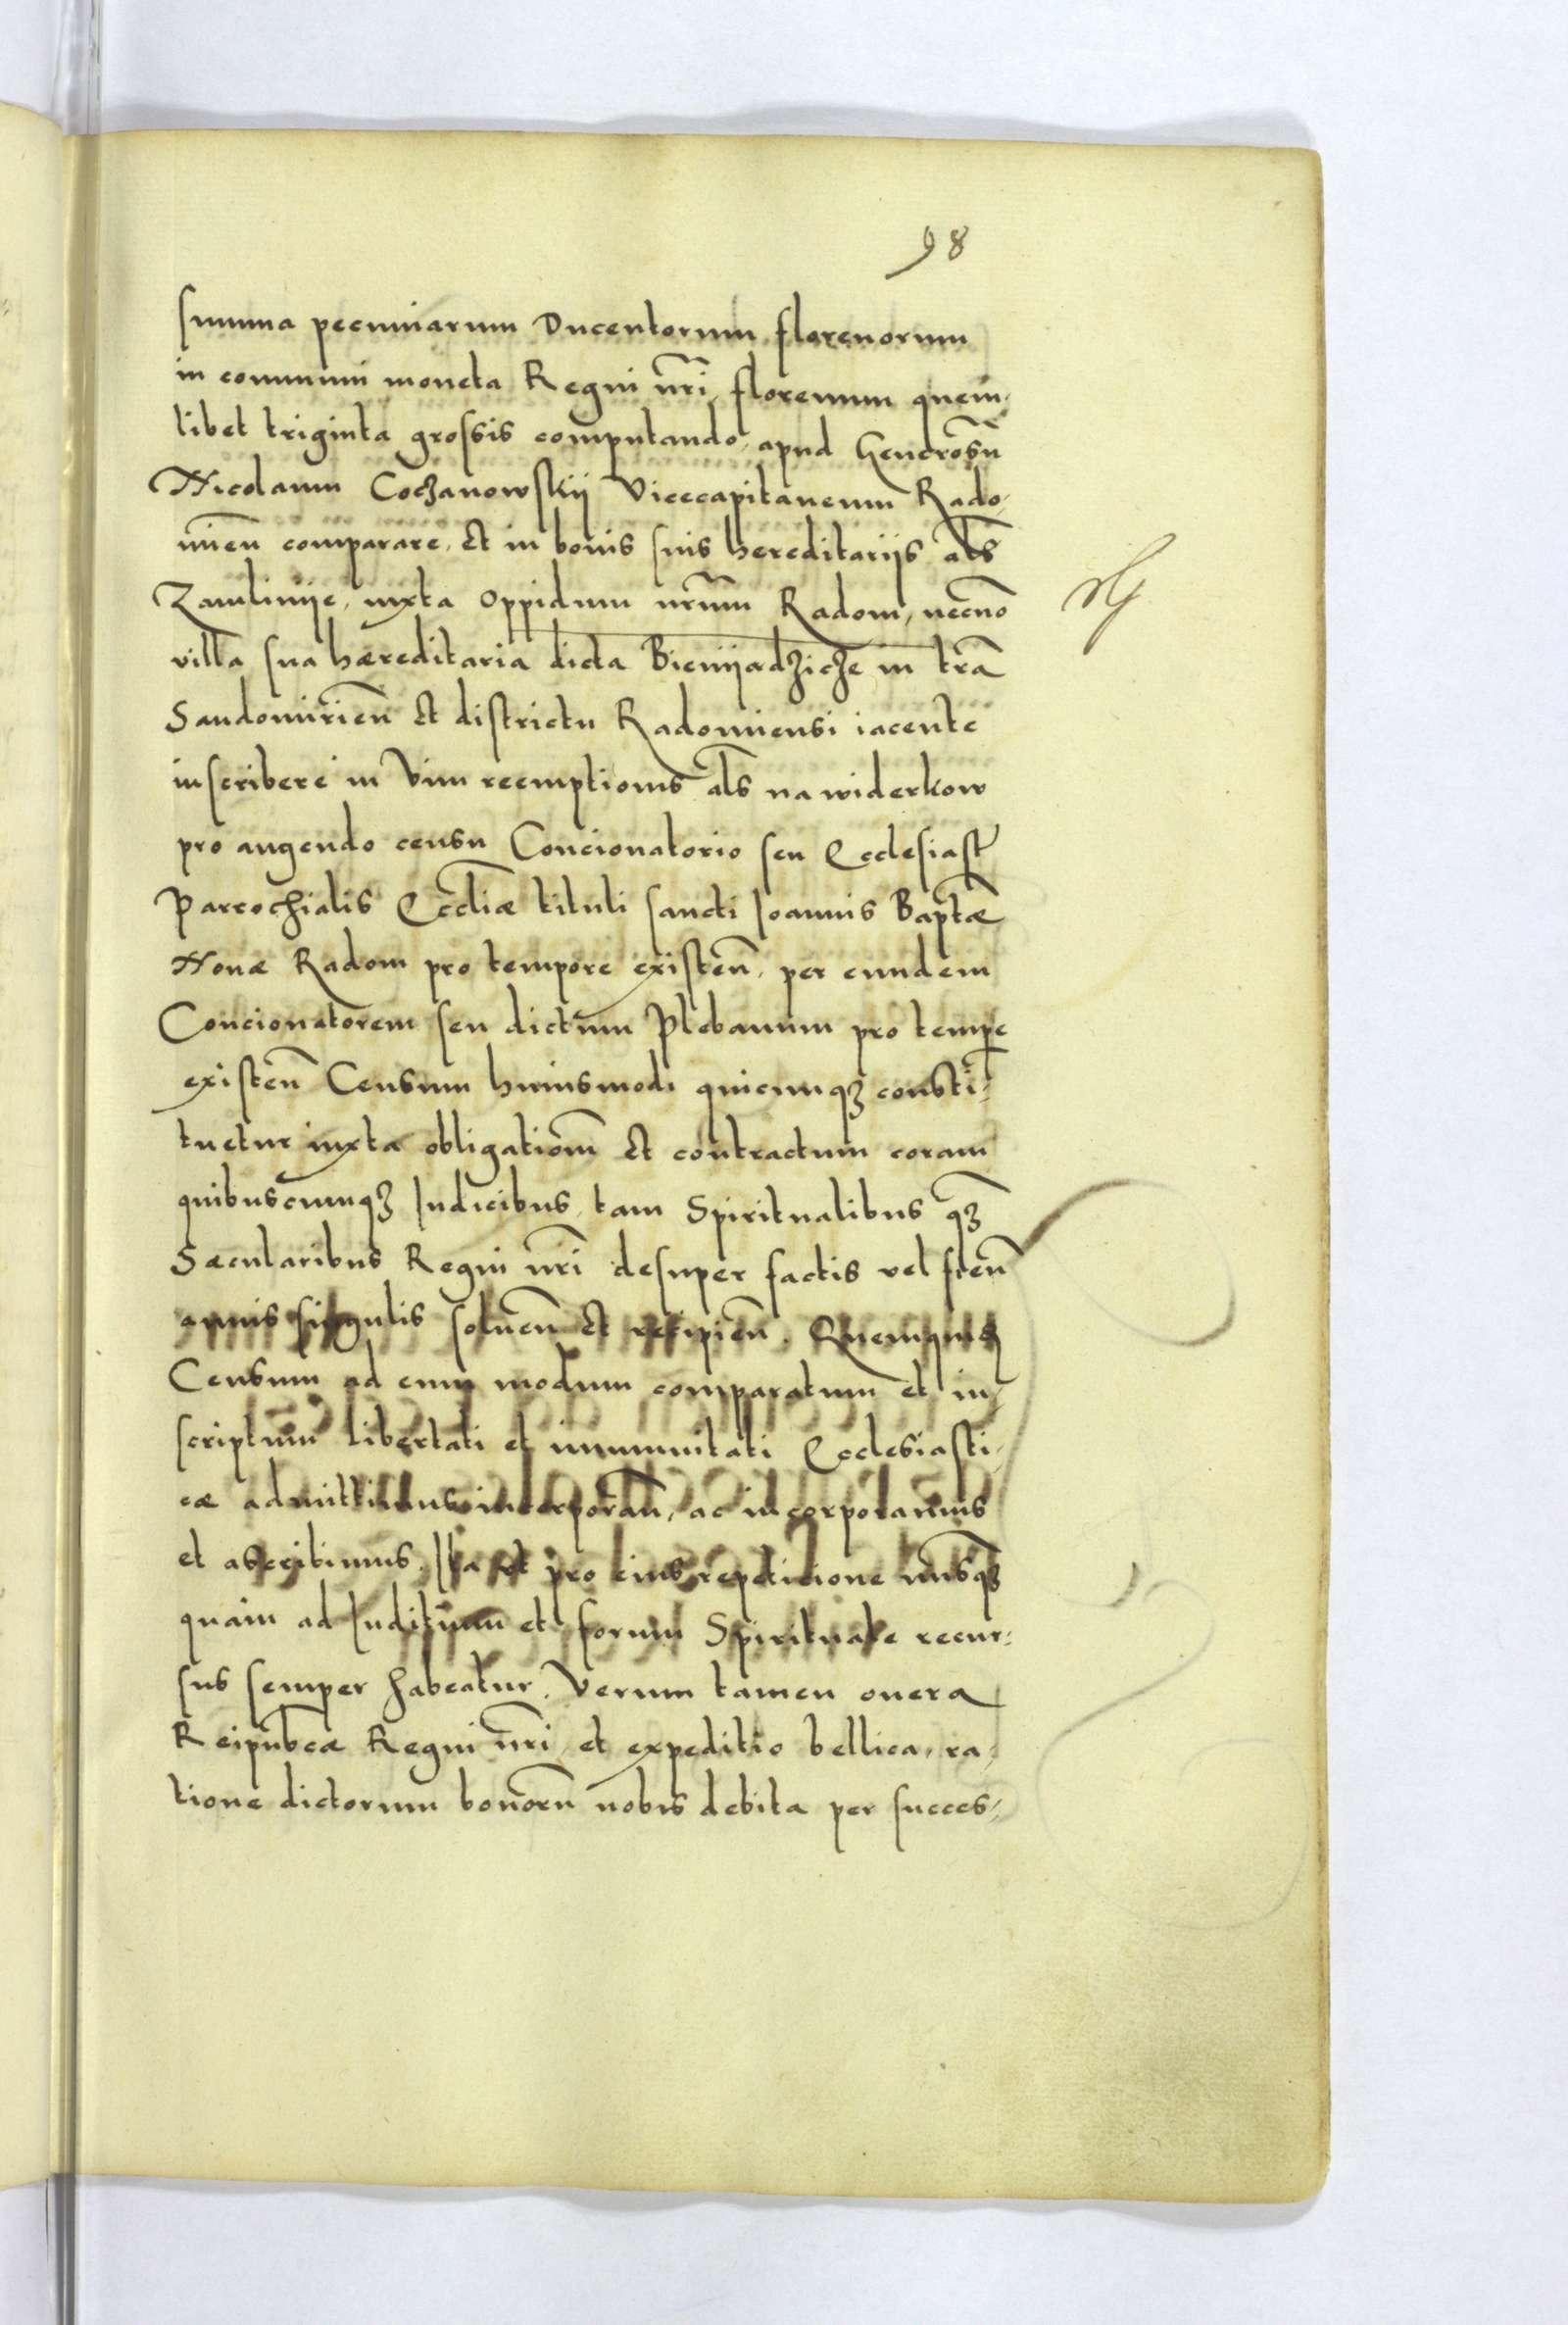 98
summa pecuniarum Ducentorum florenorum
in communi moneta Regni nr̃i, florenum quem,
libet triginta grossis computando, apud Generosũ
Nicolaum Cochanowskij Vicecapitaneum Rado,
mień comparare, et in bonis suis hereditarijs als̃
Zamlinije, iuxta oppidum nr̃um Radom, necnõ
villa sua hæreditaria dicta Bienijadziche in tr̃a
Sandomirieñ et districtu Radomiensi iacente
inscribere in Vim reemptionis als̃ na widerkow
pro augendo censu Concionatorio seu Ecclesiast̃
Parrochialis Eccl̃iæ tituli sancti Joannis Bapt̃æ
Nouæ Radom pro tempore existeñ, per eundem
Concionatorem seu dictum Plebanum pro tempe
existeñ Censum huiusmodi quicunqꝫ consti-
tuetur iuxta obligatioñm et contractum coram
quibuscumqꝫ Judicibus, tam Spiritualibus qꝫ̃
Sæcularibus Regni nr̃i desuper factis vel fieñ
annis singulis solueñ et recipieñ. Quemquidẽ
Censum ad eum modum comparatum et in,
scriptum libertati et immunitati Ecclesiasti,
cæ admittimus incorporañ, ac incorporamus
et ascribimus. Ita ut pro eius repetitione
quam ad Juditium et forum Spirituale recur-
sus semper habeatur. Verum tamen onera
Reipub̃cæ Regni nr̃i, et expeditio bellica, ra,
tione dictorum bonorũ nobis debita per succes,